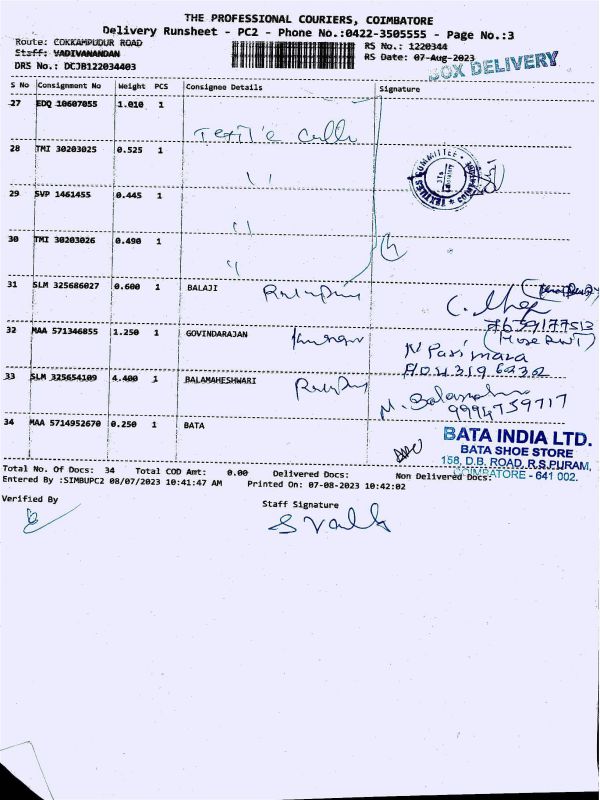 THE PROFESSIONAL COURIERS, COIMBATORE
Delivery Runsheet - PC2 - Phone No.:0422-3505555 - Page No.:3
Route: COKKAMPUDUR ROAD
RS No.: 1220344
Staff: VADIVANANDAN
RS Date: 07-Aug-2023
DRS No.: DCJB122034403
BOX DELIVERY
S No Consignment No Weight PCS Consignee Details Signature
27 EDQ 10607055 1.010 1
28 TMI 30203025 0.525 1
TEXTILES COMMITTEE
29 SVP 1461455 0.445 1
30 TMI 30203026 0.490 1
31 SLM 325686027 0.600 1 BALAJI
32 MAA 571346855 1.250 1 GOVINDARAJAN
33 SLM 325654109 4.400 1 BALAMAHESHWARI
9994759717
34 MAA 5714952670 0.250 1 BATA
BATA INDIA LTD.
BATA SHOE STORE
158, D.B. ROAD, R.S.PURAM,
COIMBATORE - 641 002.
Total No. Of Docs: 34 Total COD Amt: 0.00 Delivered Docs: Non Delivered Docs:
Entered By :SIMBUPC2 08/07/2023 10:41:47 AM Printed On: 07-08-2023 10:42:02
Verified By
Staff Signature